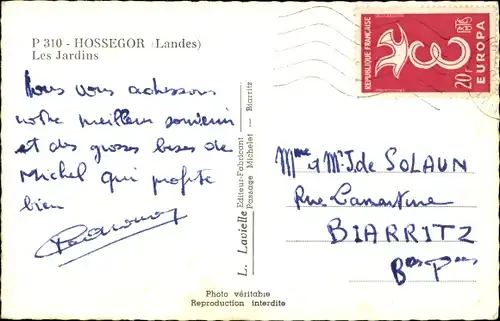 P 310 - HOSSEGOR (Landes)
Les Jardins
Nous vous adressons
notre meilleur souvenir
et des grosses bises de
Michel qui profite
bien
L. Lavielle Editeur-Fabricant
Passage Michelet - Biarritz
Photo véritable
Reproduction interdite
REPUBLIQUE FRANÇAISE
1958
20F
EUROPA
Mme et Mr J. de SOLAUN
Rue Lamartine
BIARRITZ
Bses Pses